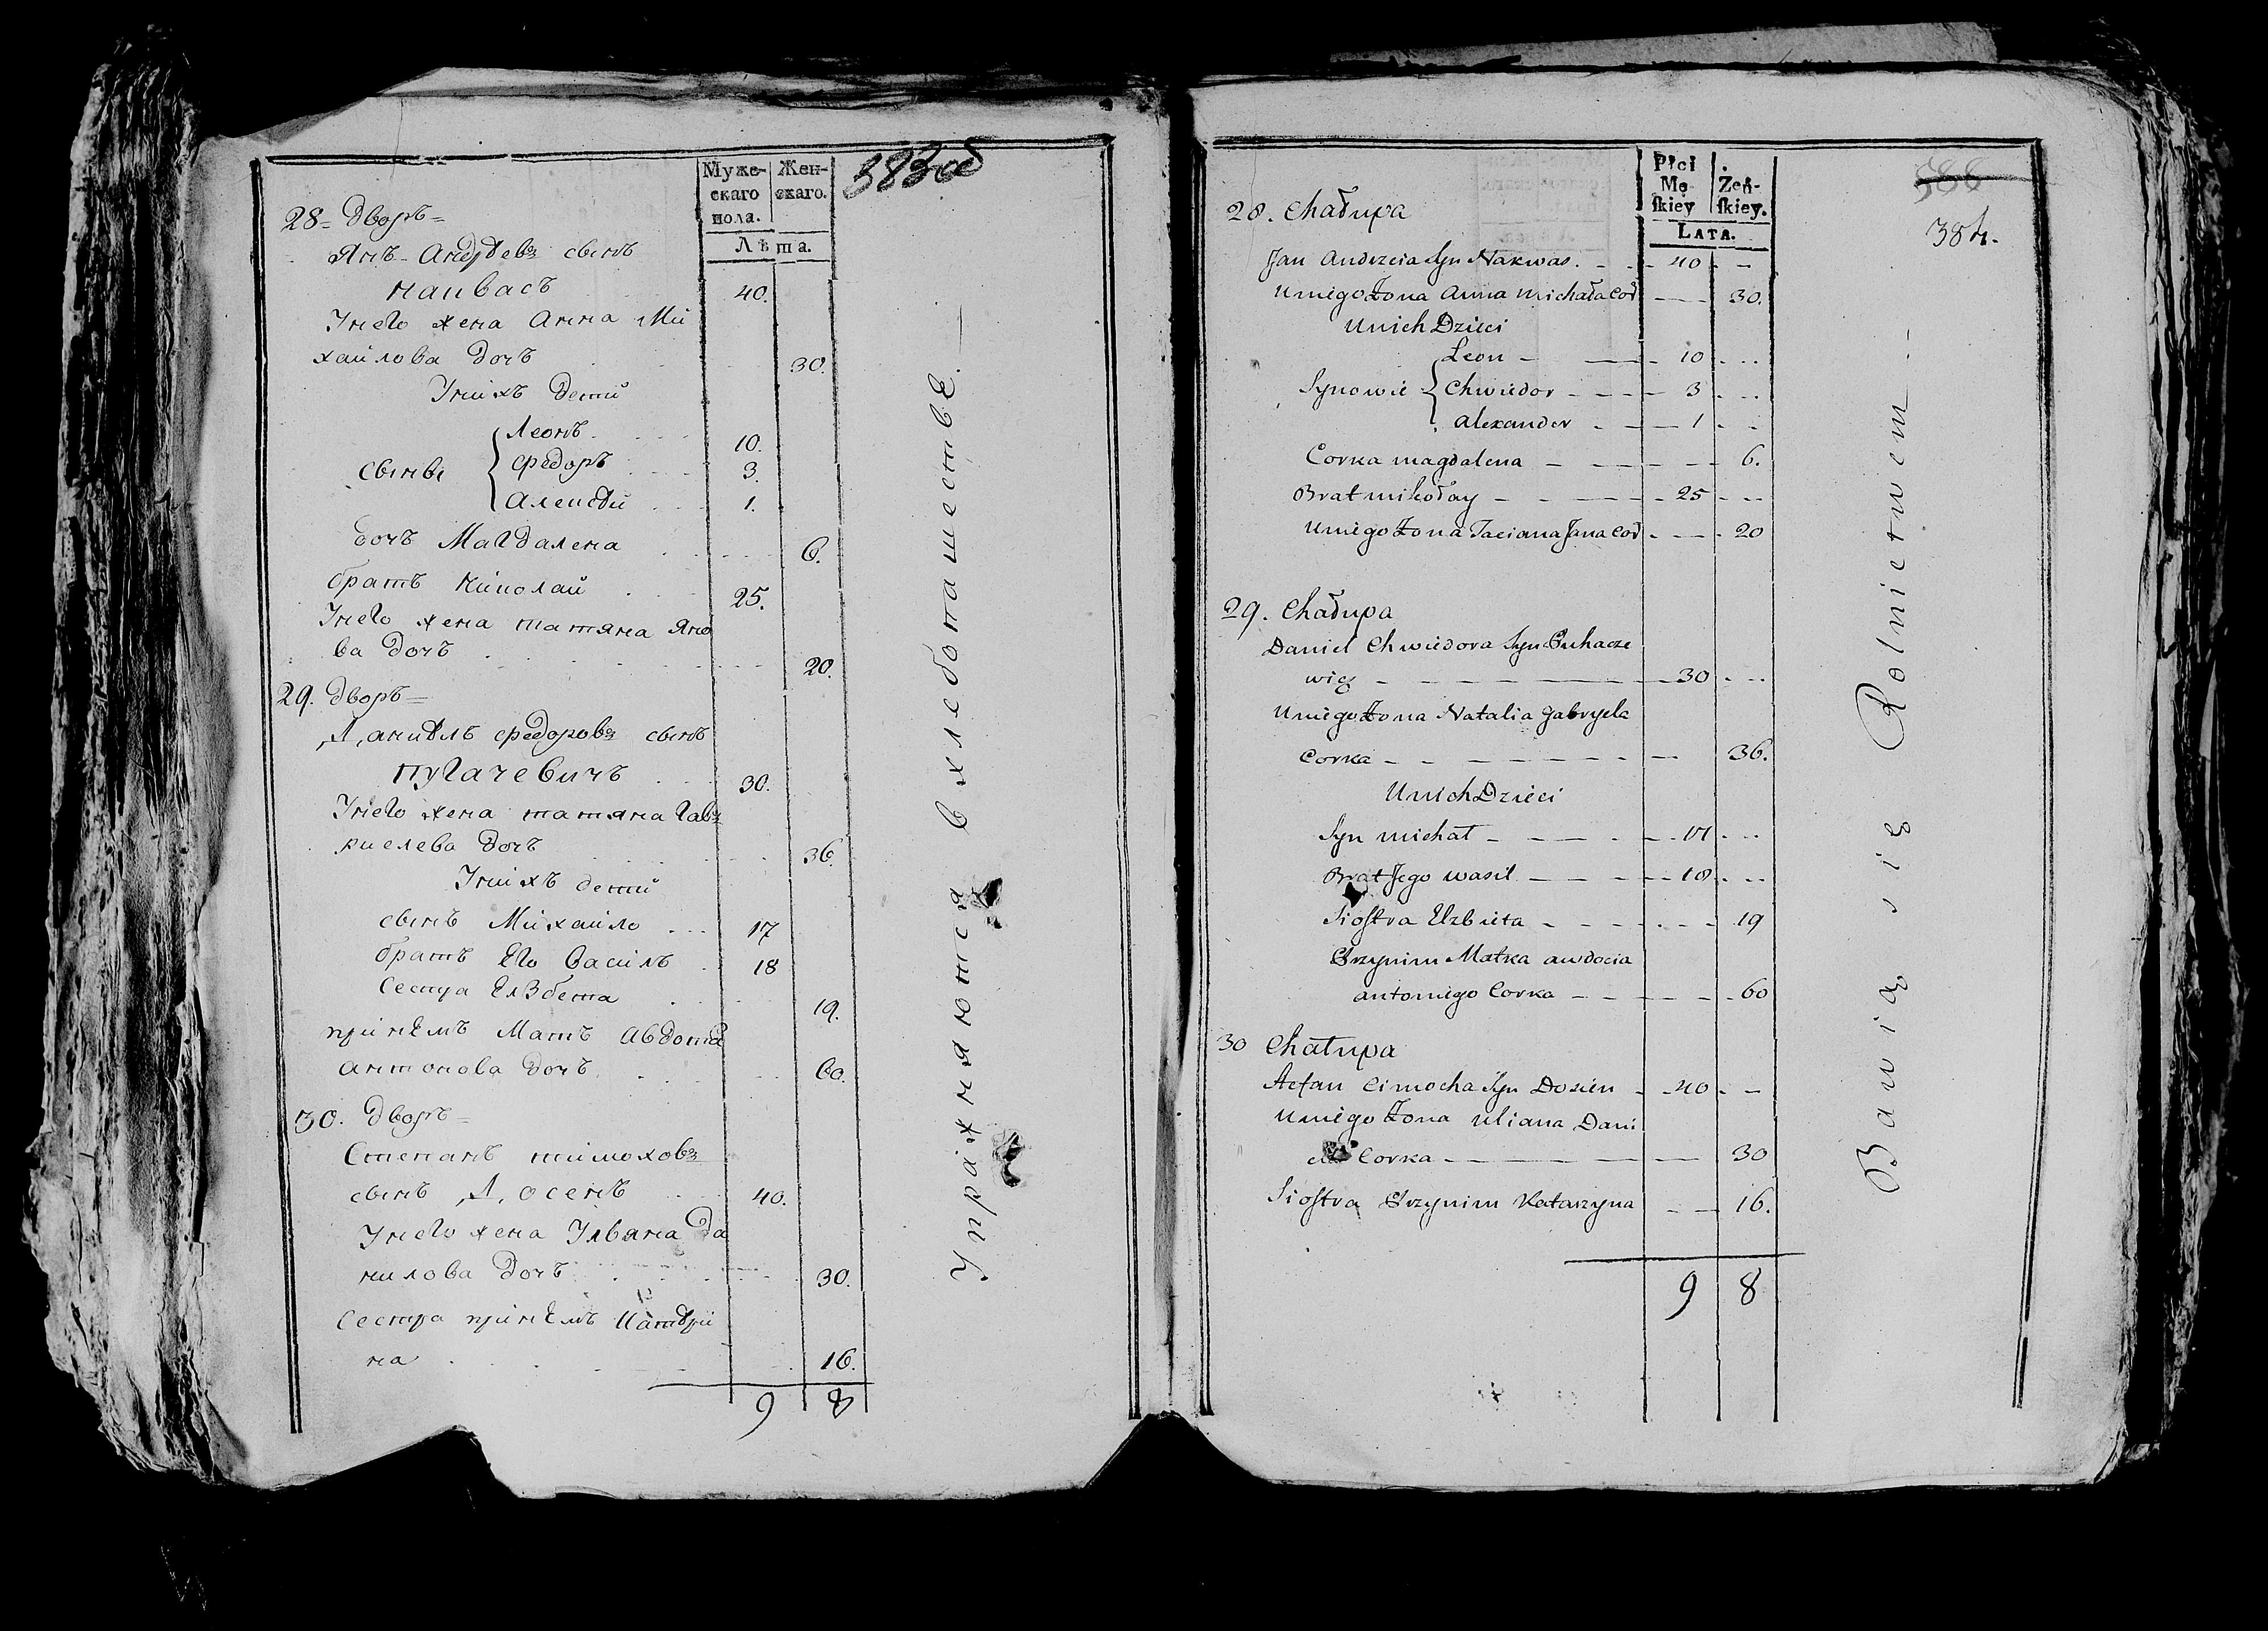 383об
Муже-
скаго
пола.
Жен-
скаго.
Лѣта.
28 = Дворъ =
Янъ Андрѣевъ сынъ
Наквасъ 40.
У него жена Анна Ми
хайлова дочь 30.
У нихъ дети
Леонъ 10.
сыны { Федоръ 3.
Алексѣй 1.
дочь Магдалена 6.
братъ Николай 25.
У него жена татяна Яно
ва дочь 20.
29. дворъ =
Даніѣлъ Федоровъ сынъ
Пугачевичъ 30.
У него жена татяна Гав
риелева дочь 36.
У нихъ дети
сынъ Михайло 17
братъ Его Василь 18
Сестра Елзбета 19.
при нѣмъ Мать Авдотія
Антонова дочь 60.
30. дворъ =
Степанъ тимоховъ
сынъ Досенъ 40.
У него жена Ульяна Да
нилова дочь 30.
Сестра при нѣмъ Катѣри
на 16.
9 8
Упражняются в хлебопашествѣ.
Płci
Mę-
skiey
Żeń-
skiey.
LATA.
386
384.
28. Chałupa
Jan Andrzeia Syn Nakwas 40
U niego Żona Anna Michała Cor 30.
U nich Dzieci
Leon 10
Synowie { Chwiedor 3
Alexander 1
Corka Magdalena 6.
Brat Mikołay 25
U niego Żona Taciana Jana Cor 20
29. Chałupa
Daniel Chwiedora Syn Puhacze
wicz 30
U niego Żona Natalia Gabryela
Corka 36.
U nich Dzieci
Syn Michał 17
Brat Jego Wasil 18
Siostra Elzbieta 19
Przynim Matka Awdocia
Antoniego Corka 60
30 Chałupa
Stefan Cimocha Syn Dosien 40
U niego Żona Uliana Dani
Corka 30
Siostra Przynim Katarzyna 16.
9 8
Bawią się Rolnictwem